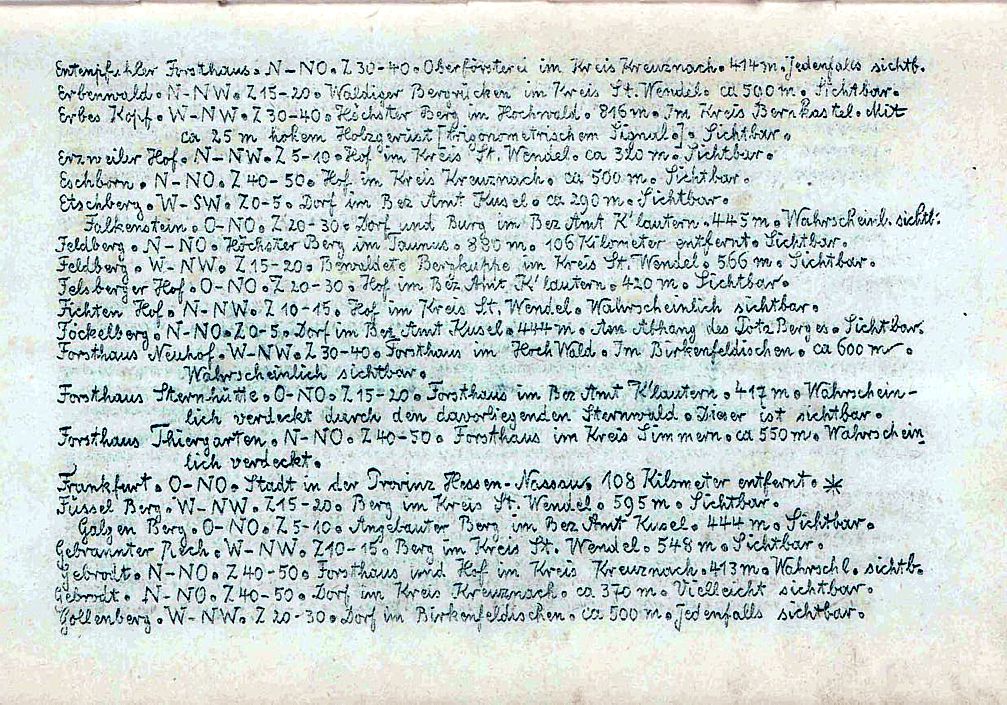 Entenpfuhler Forsthaus. N-NO. Z 30-40. Oberförsterei im Kreis Kreuznach. 414 m. Jedenfalls sichtb.
Erbenwald. N-NW. Z 15-20. Waldiger Bergrücken im Kreis St. Wendel. ca 500 m. Sichtbar.
Erbes Kopf. W-NW. Z 30-40. Höchster Berg im Hochwald. 816 m. Im Kreis Bernkastel. Mit
ca 25 m hohem Holzgerüst [trigonometrischem Signal]. Sichtbar.
Erzweiler Hof. N-NW. Z 5-10. Hof im Kreis St. Wendel. ca 320 m. Sichtbar.
Eschborn. N-NO. Z 40-50. Hof im Kreis Kreuznach. ca 500 m. Sichtbar.
Etschberg. W-SW. Z 0-5. Dorf im Bez Amt Kusel. ca 290 m. Sichtbar.
Falkenstein. O-NO. Z 20-30. Dorf und Burg im Bez Amt K'lautern. 445 m. Wahrscheinl. sichtb.
Feldberg. N-NO. Höchster Berg im Taunus. 880 m. 106 Kilometer entfernt. Sichtbar.
Feldberg. W-NW. Z 15-20. Bewaldete Bergkuppe im Kreis St. Wendel. 566 m. Sichtbar.
Felsberger Hof. O-NO. Z 20-30. Hof im Bez Amt K'lautern. 420 m. Sichtbar.
Fichten Hof. N-NW. Z 10-15. Hof im Kreis St. Wendel. Wahrscheinlich sichtbar.
Föckelberg. N-NO. Z 0-5. Dorf im Bez Amt Kusel. 444 m. Am Abhang des Potz Berges. Sichtbar.
Forsthaus Neuhof. W-NW. Z 30-40. Forsthaus im Hoch Wald. Im Birkenfeldischen. ca 600 m.
Wahrscheinlich sichtbar.
Forsthaus Sternhütte. O-NO. Z 15-20. Forsthaus im Bez Amt K'lautern. 417 m. Wahrschein-
lich verdeckt durch den davorliegenden Sternwald. Dieser ist sichtbar.
Forsthaus Thiergarten. N-NO. Z 40-50. Forsthaus im Kreis Simmern. ca 550 m. Wahrschein
lich verdeckt.
Frankfurt. O-NO. Stadt in der Provinz Hessen-Nassau. 108 Kilometer entfernt. *
Füssel Berg. W-NW. Z 15-20. Berg im Kreis St. Wendel. 595 m. Sichtbar.
Galgen Berg. O-NO. Z 5-10. Angebauter Berg im Bez Amt Kusel. 444 m. Sichtbar.
Gebrannter Rech. W-NW. Z 10-15. Berg im Kreis St. Wendel. 548 m. Sichtbar.
Gebrodt. N-NO. Z 40-50. Forsthaus und Hof im Kreis Kreuznach. 413 m. Wahrschl. sichtb.
Gebrodt. N-NO. Z 40-50. Dorf im Kreis Kreuznach. ca 370 m. Vielleicht sichtbar.
Gollenberg. W-NW. Z 20-30. Dorf im Birkenfeldischen. ca 500 m. Jedenfalls sichtbar.